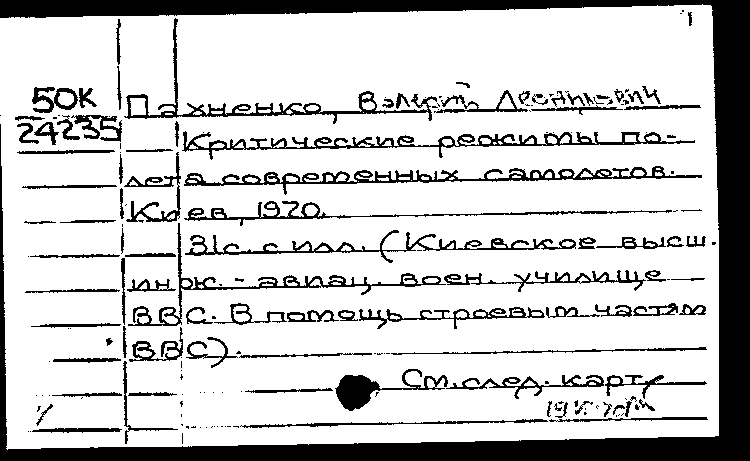 1
50К Пахненко, Валерий Леонидович
24235 Критические режимы по-
лета современных самолетов.
Киев, 1970.
31с. с илл. (Киевское высш.
инж.-авиац. воен. училище
ВВС. В помощь строевым частям
ВВС).
См. след. карт